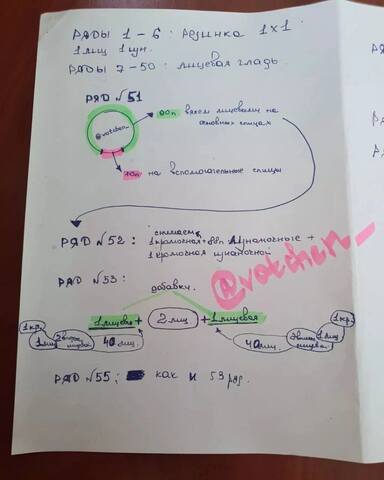 РЯДЫ 1 - 6 : РЕЗИНКА 1х1
1 лиц 1 изн.
РЯДЫ 7 - 50 : ЛИЦЕВАЯ ГЛАДЬ
РЯД №51
90п вяжем лицевыми на
основных спицах
@votchen_
10п на вспомогательные спицы
РЯД №52: снимаем
1 кромочная + 88п изнаночные +
1 кромочная изнаночной
@votchen_
РЯД №53: добавки.
1 лицевая + 2 лиц + 1 лицевая
1 кр. 1 лиц 40 лиц. 40 лиц. 1 лиц 1 кр.
РЯД №55: как и 53 ряд.